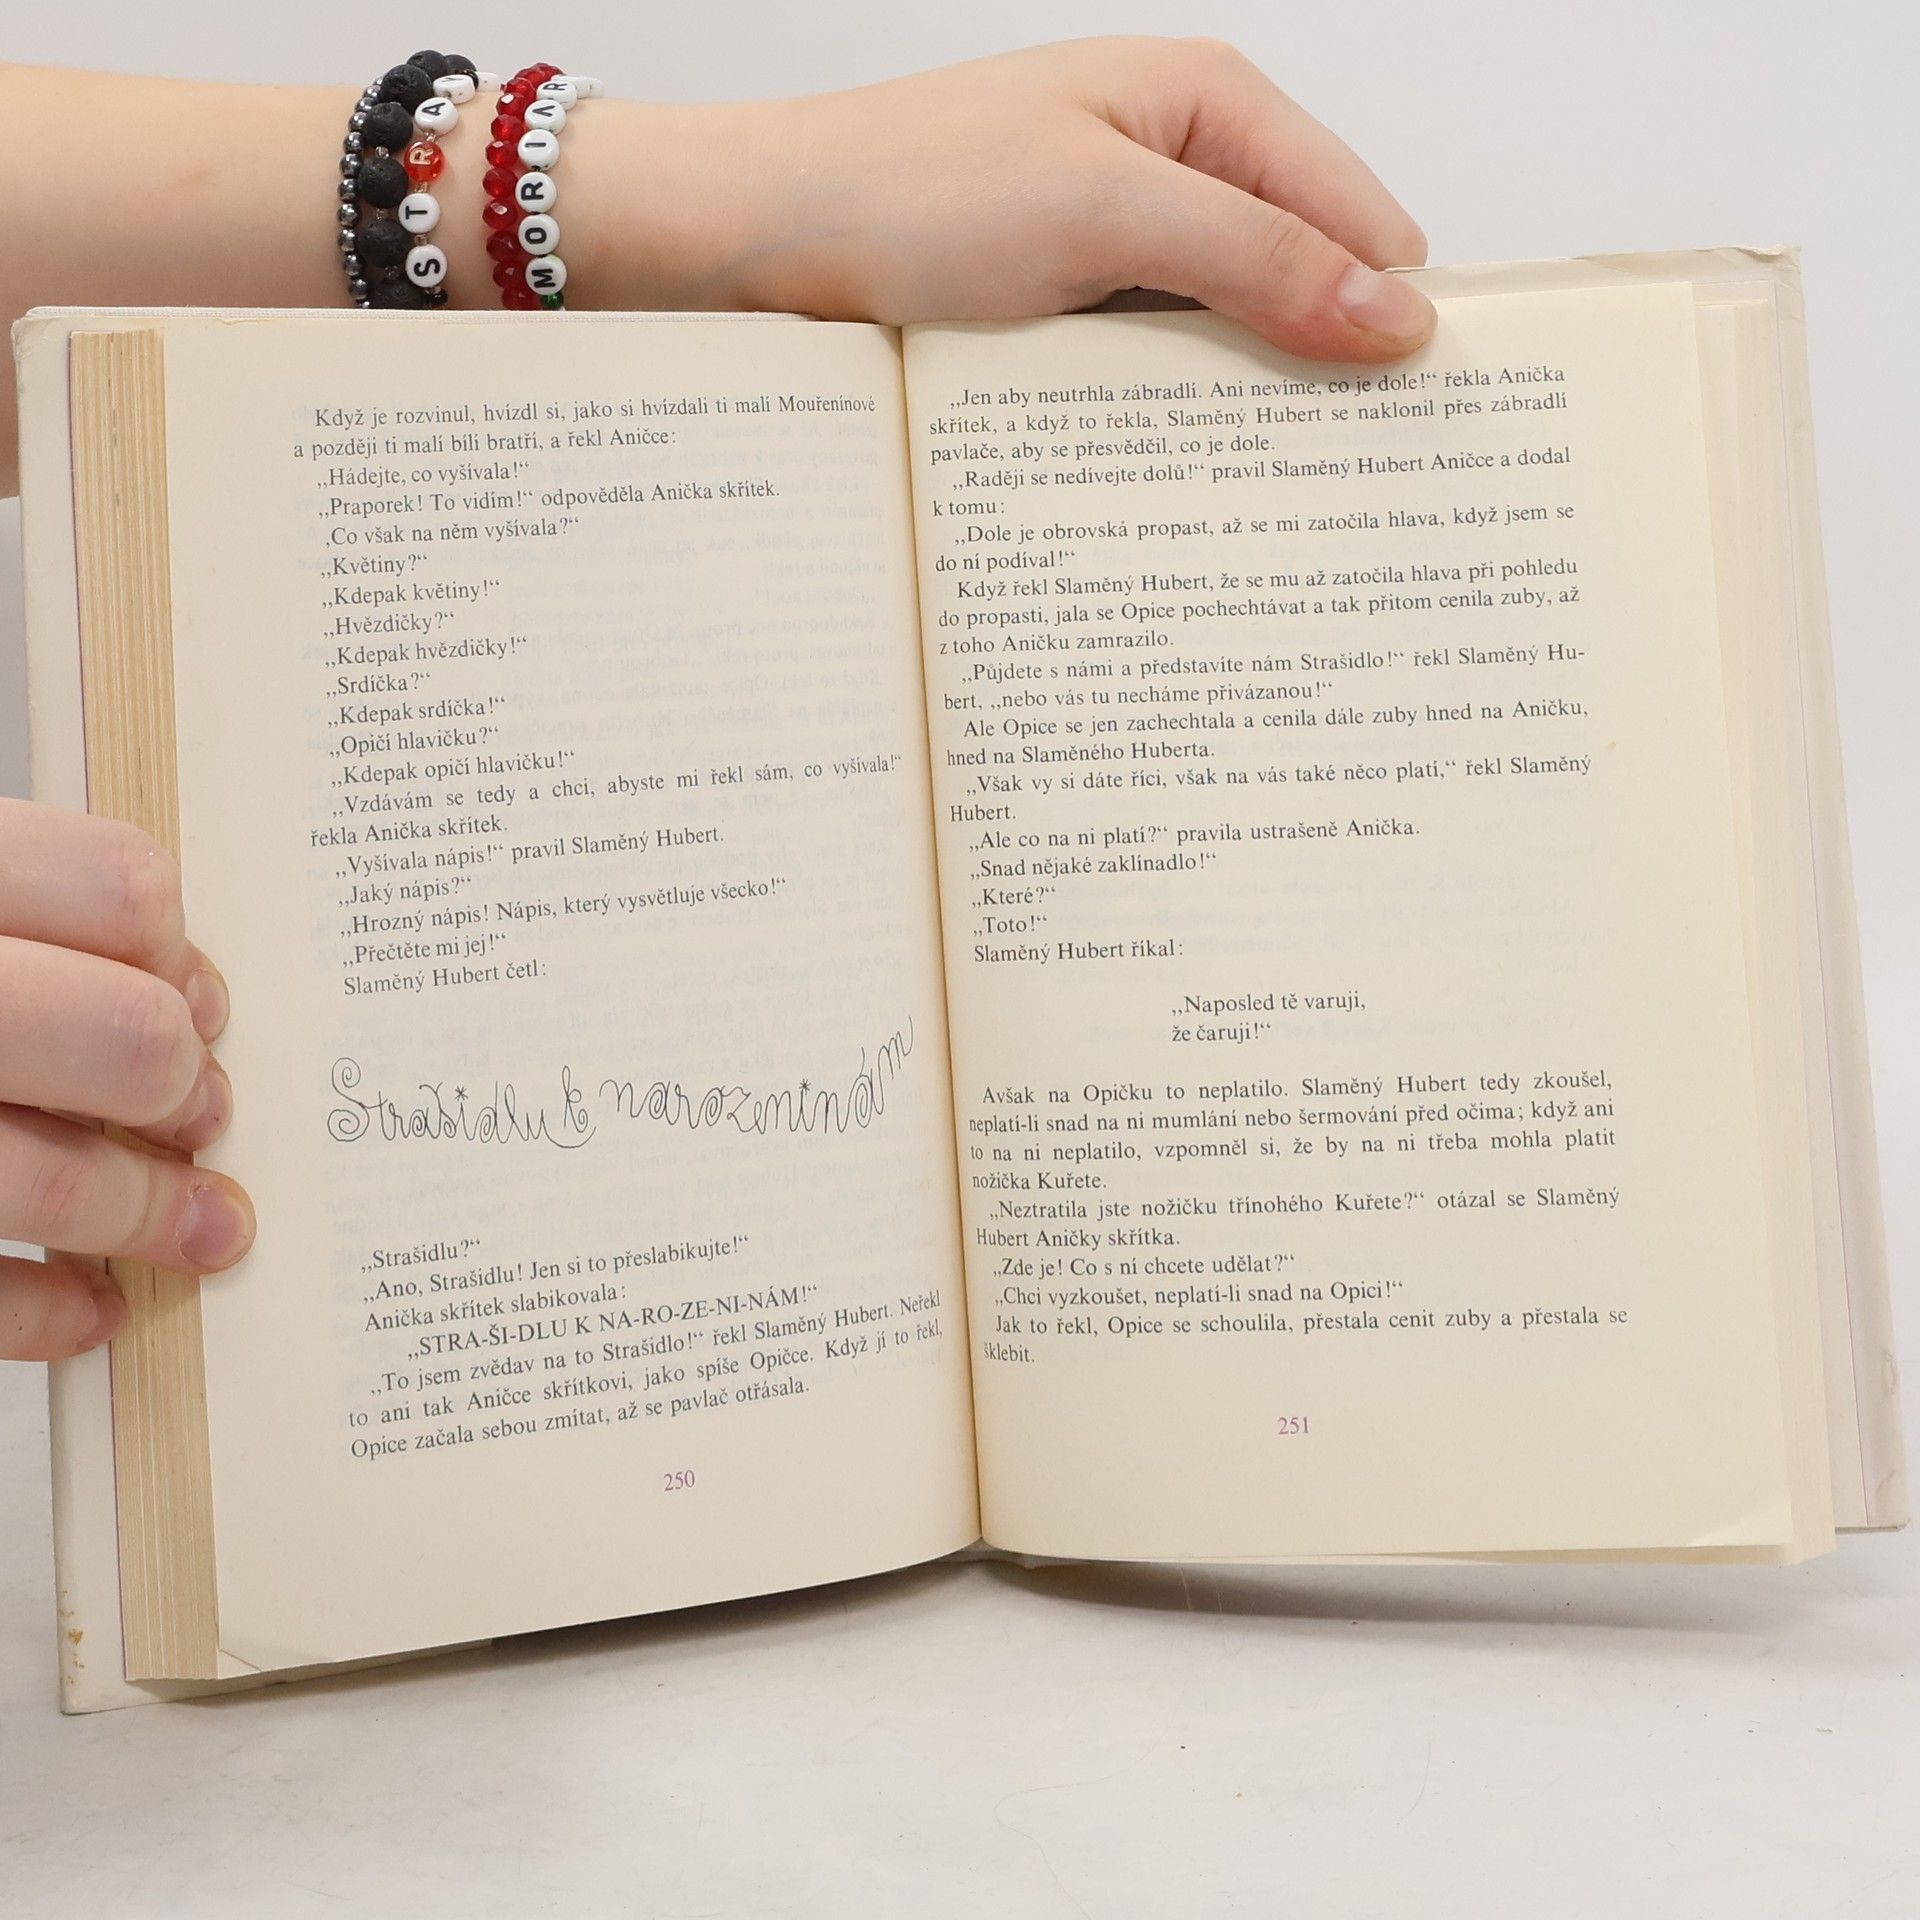 STRA
MORIAR
Když je rozvinul, hvízdl si, jako si hvízdali ti malí Mouřenínové
a později ti malí bílí bratří, a řekl Aničce:
„Hádejte, co vyšívala!“
„Praporek! To vidím!“ odpověděla Anička skřítek.
‚Co však na něm vyšívala?“
„Květiny?“
„Kdepak květiny!“
„Hvězdičky?“
„Kdepak hvězdičky!“
„Srdíčka?“
„Kdepak srdíčka!“
„Opičí hlavičku?“
„Kdepak opičí hlavičku!“
„Vzdávám se tedy a chci, abyste mi řekl sám, co vyšívala!“
řekla Anička skřítek.
„Vyšívala nápis!“ pravil Slaměný Hubert.
„Jaký nápis?“
„Hrozný nápis! Nápis, který vysvětluje všecko!“
„Přečtěte mi jej!“
Slaměný Hubert četl:
Strašidlu k narozeninám
„Strašidlu?“
„Ano, Strašidlu! Jen si to přeslabikujte!“
Anička skřítek slabikovala:
„STRA-ŠI-DLU K NA-RO-ZE-NI-NÁM!“
„To jsem zvědav na to Strašidlo!“ řekl Slaměný Hubert. Neřekl
to ani tak Aničce skřítkovi, jako spíše Opičce. Když jí to řekl,
Opice začala sebou zmítat, až se pavlač otřásala.
250
„Jen aby neutrhla zábradlí. Ani nevíme, co je dole!“ řekla Anička
skřítek, a když to řekla, Slaměný Hubert se naklonil přes zábradlí
pavlače, aby se přesvědčil, co je dole.
„Raději se nedívejte dolů!“ pravil Slaměný Hubert Aničce a dodal
k tomu:
„Dole je obrovská propast, až se mi zatočila hlava, když jsem se
do ní podíval!“
Když řekl Slaměný Hubert, že se mu až zatočila hlava při pohledu
do propasti, jala se Opice pochechtávat a tak přitom cenila zuby, až
z toho Aničku zamrazilo.
„Půjdete s námi a představíte nám Strašidlo!“ řekl Slaměný Hu-
bert, „nebo vás tu necháme přivázanou!“
Ale Opice se jen zachechtala a cenila dále zuby hned na Aničku,
hned na Slaměného Huberta.
„Však vy si dáte říci, však na vás také něco platí,“ řekl Slaměný
Hubert.
„Ale co na ni platí?“ pravila ustrašeně Anička.
„Snad nějaké zaklínadlo!“
„Které?“
„Toto!“
Slaměný Hubert říkal:
„Naposled tě varuji,
že čaruji!“
Avšak na Opičku to neplatilo. Slaměný Hubert tedy zkoušel,
neplatí-li snad na ni mumlání nebo šermování před očima; když ani
to na ni neplatilo, vzpomněl si, že by na ni třeba mohla platit
nožička Kuřete.
„Neztratila jste nožičku třínohého Kuřete?“ otázal se Slaměný
Hubert Aničky skřítka.
„Zde je! Co s ní chcete udělat?“
„Chci vyzkoušet, neplatí-li snad na Opici!“
Jak to řekl, Opice se schoulila, přestala cenit zuby a přestala se
šklebit.
251